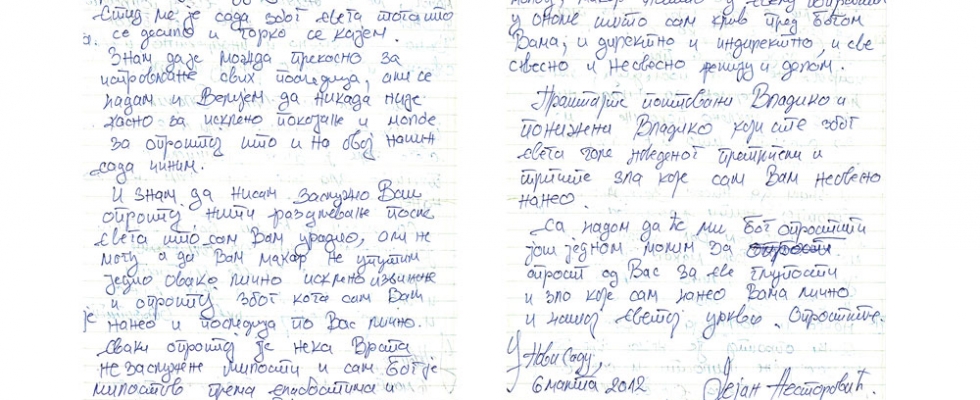 Стид ме је сада због свега тога што
се десило и горко се кајем.
Знам да је можда прекасно за
исправљање свих последица, али се
надам и верујем да никада није
касно за искрено покајање и молбе
за опроштај што и на овај начин
сада чиним.
И знам да нисам заслужио Ваш
опроштај нити разумевање после
свега што сам Вам урадио, али не
могу а да Вам макар не упутим
једно овако лично искрено извињење
и опроштај због кога сам Вам
је нанео и последица по Вас лично.
Сваки опроштај је нека врста
незаслужене милости и сам Бог је
милостив према
у ономе што сам крив пред Богом
Вама, и директно и индиректно, и све
свесно и несвесно речју и делом.
Праштајте поштовани Владико и
понижени Владико који сте због
свега горе наведеног пропатили и
трпите зла које сам Вам несвесно
нанео.
Са надом да ће ми Бог опростити
још једном молим за
опрост од Вас за све глупости
и зло које сам нанео Вама лично
и нашој светој цркви. Опростите.
У Новом Саду,
6 марта 2012 Дејан Несторовић.